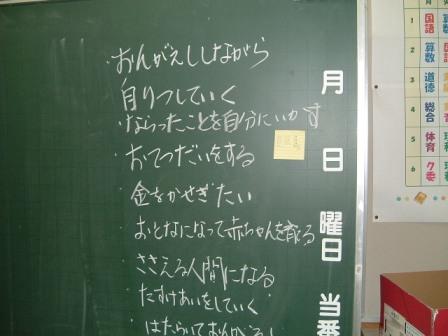 ・おんがえししながら
自りつしていく
・ならったことを自分にいかす
・おてつだいをする
・金をかせぎたい
・おとなになって赤ちゃんを育る
・ささえる人間になる
・たすけあいをしていく
・はたらいておんがえし
月
日
曜日
当番
1 国語
2 算数
3 道徳
4 総合
5 体育
6 ク委